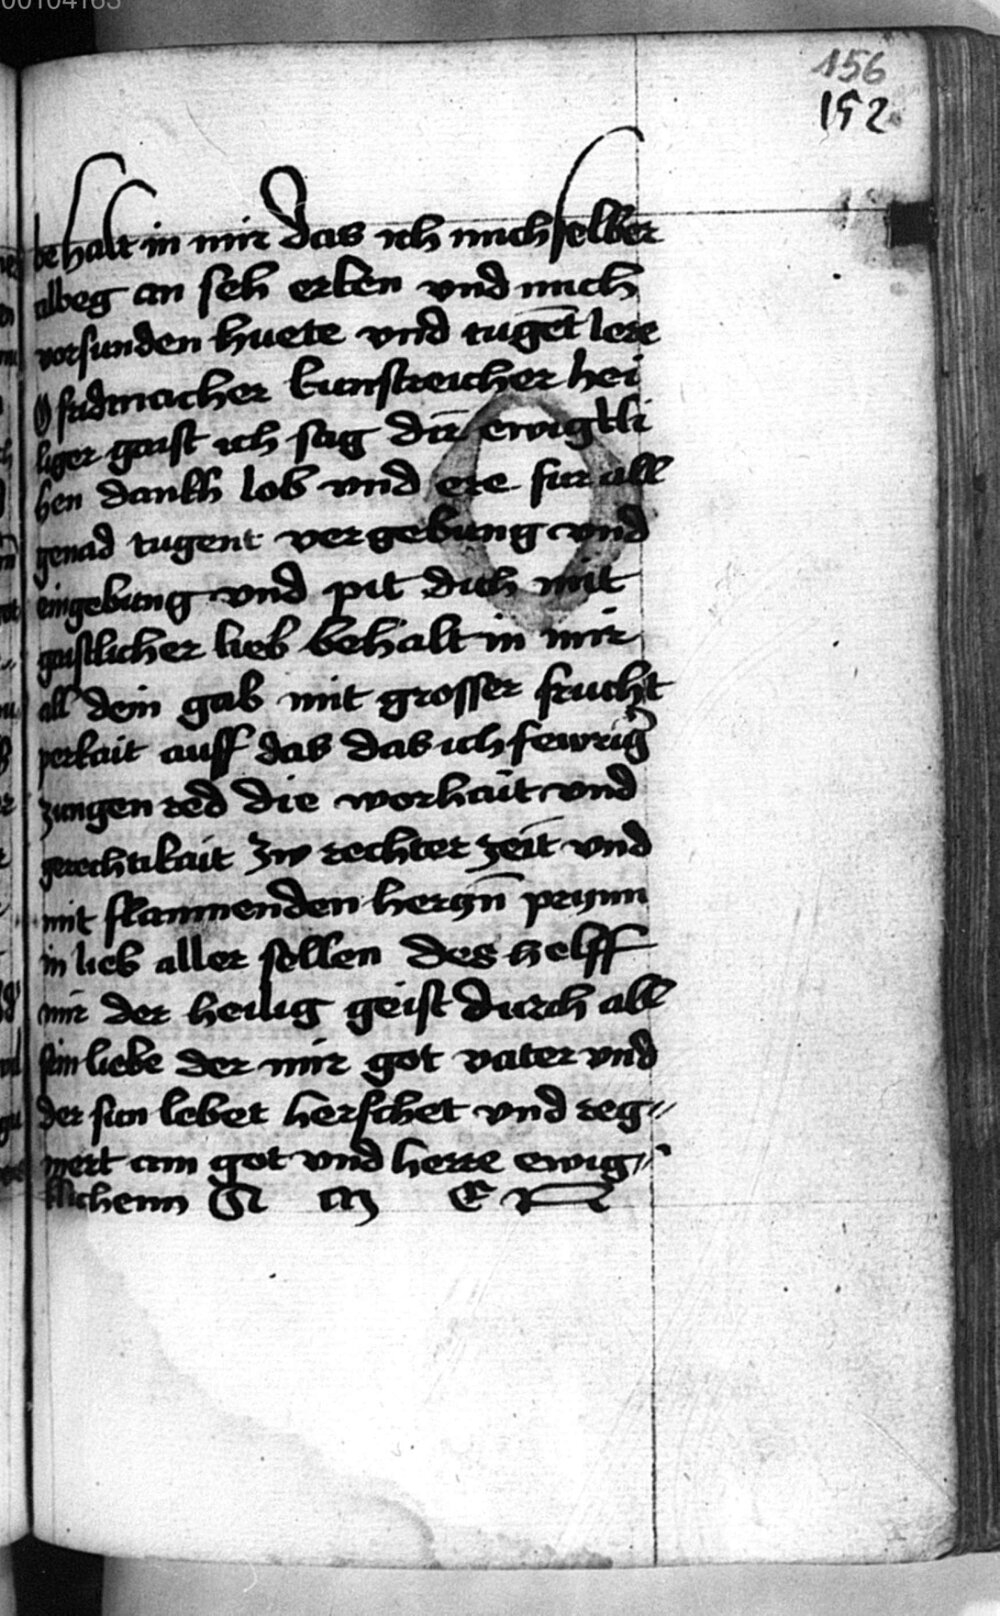 00104163
156
152
behalt in mir das ich mich selber
albeg an seh erken vnd mich
vor sunden huete vnd tugēt lere
O fridmacher kunstreicher hei
liger gaist ich sag dir ewigkli
hen dankh lob vnd ere fur all
genad tugent vergebung vnd
eingebung vnd pit dich mit
gaistlicher lieb behalt in mir
all dein gab mit grosser frucht
perkait auff das das ich fewrig̉
zungen red die worhait vnd
gerechtikait zw rechter zeit vnd
mit flammenden herczn̄ prynn
in lieb aller sellen des helff
mir der heilig geist durch all
sein liebe der mir got vater vnd
der sun lebet herschet vnd reg〃
niert ain got vnd herre ewig〃
klichenn A M E N